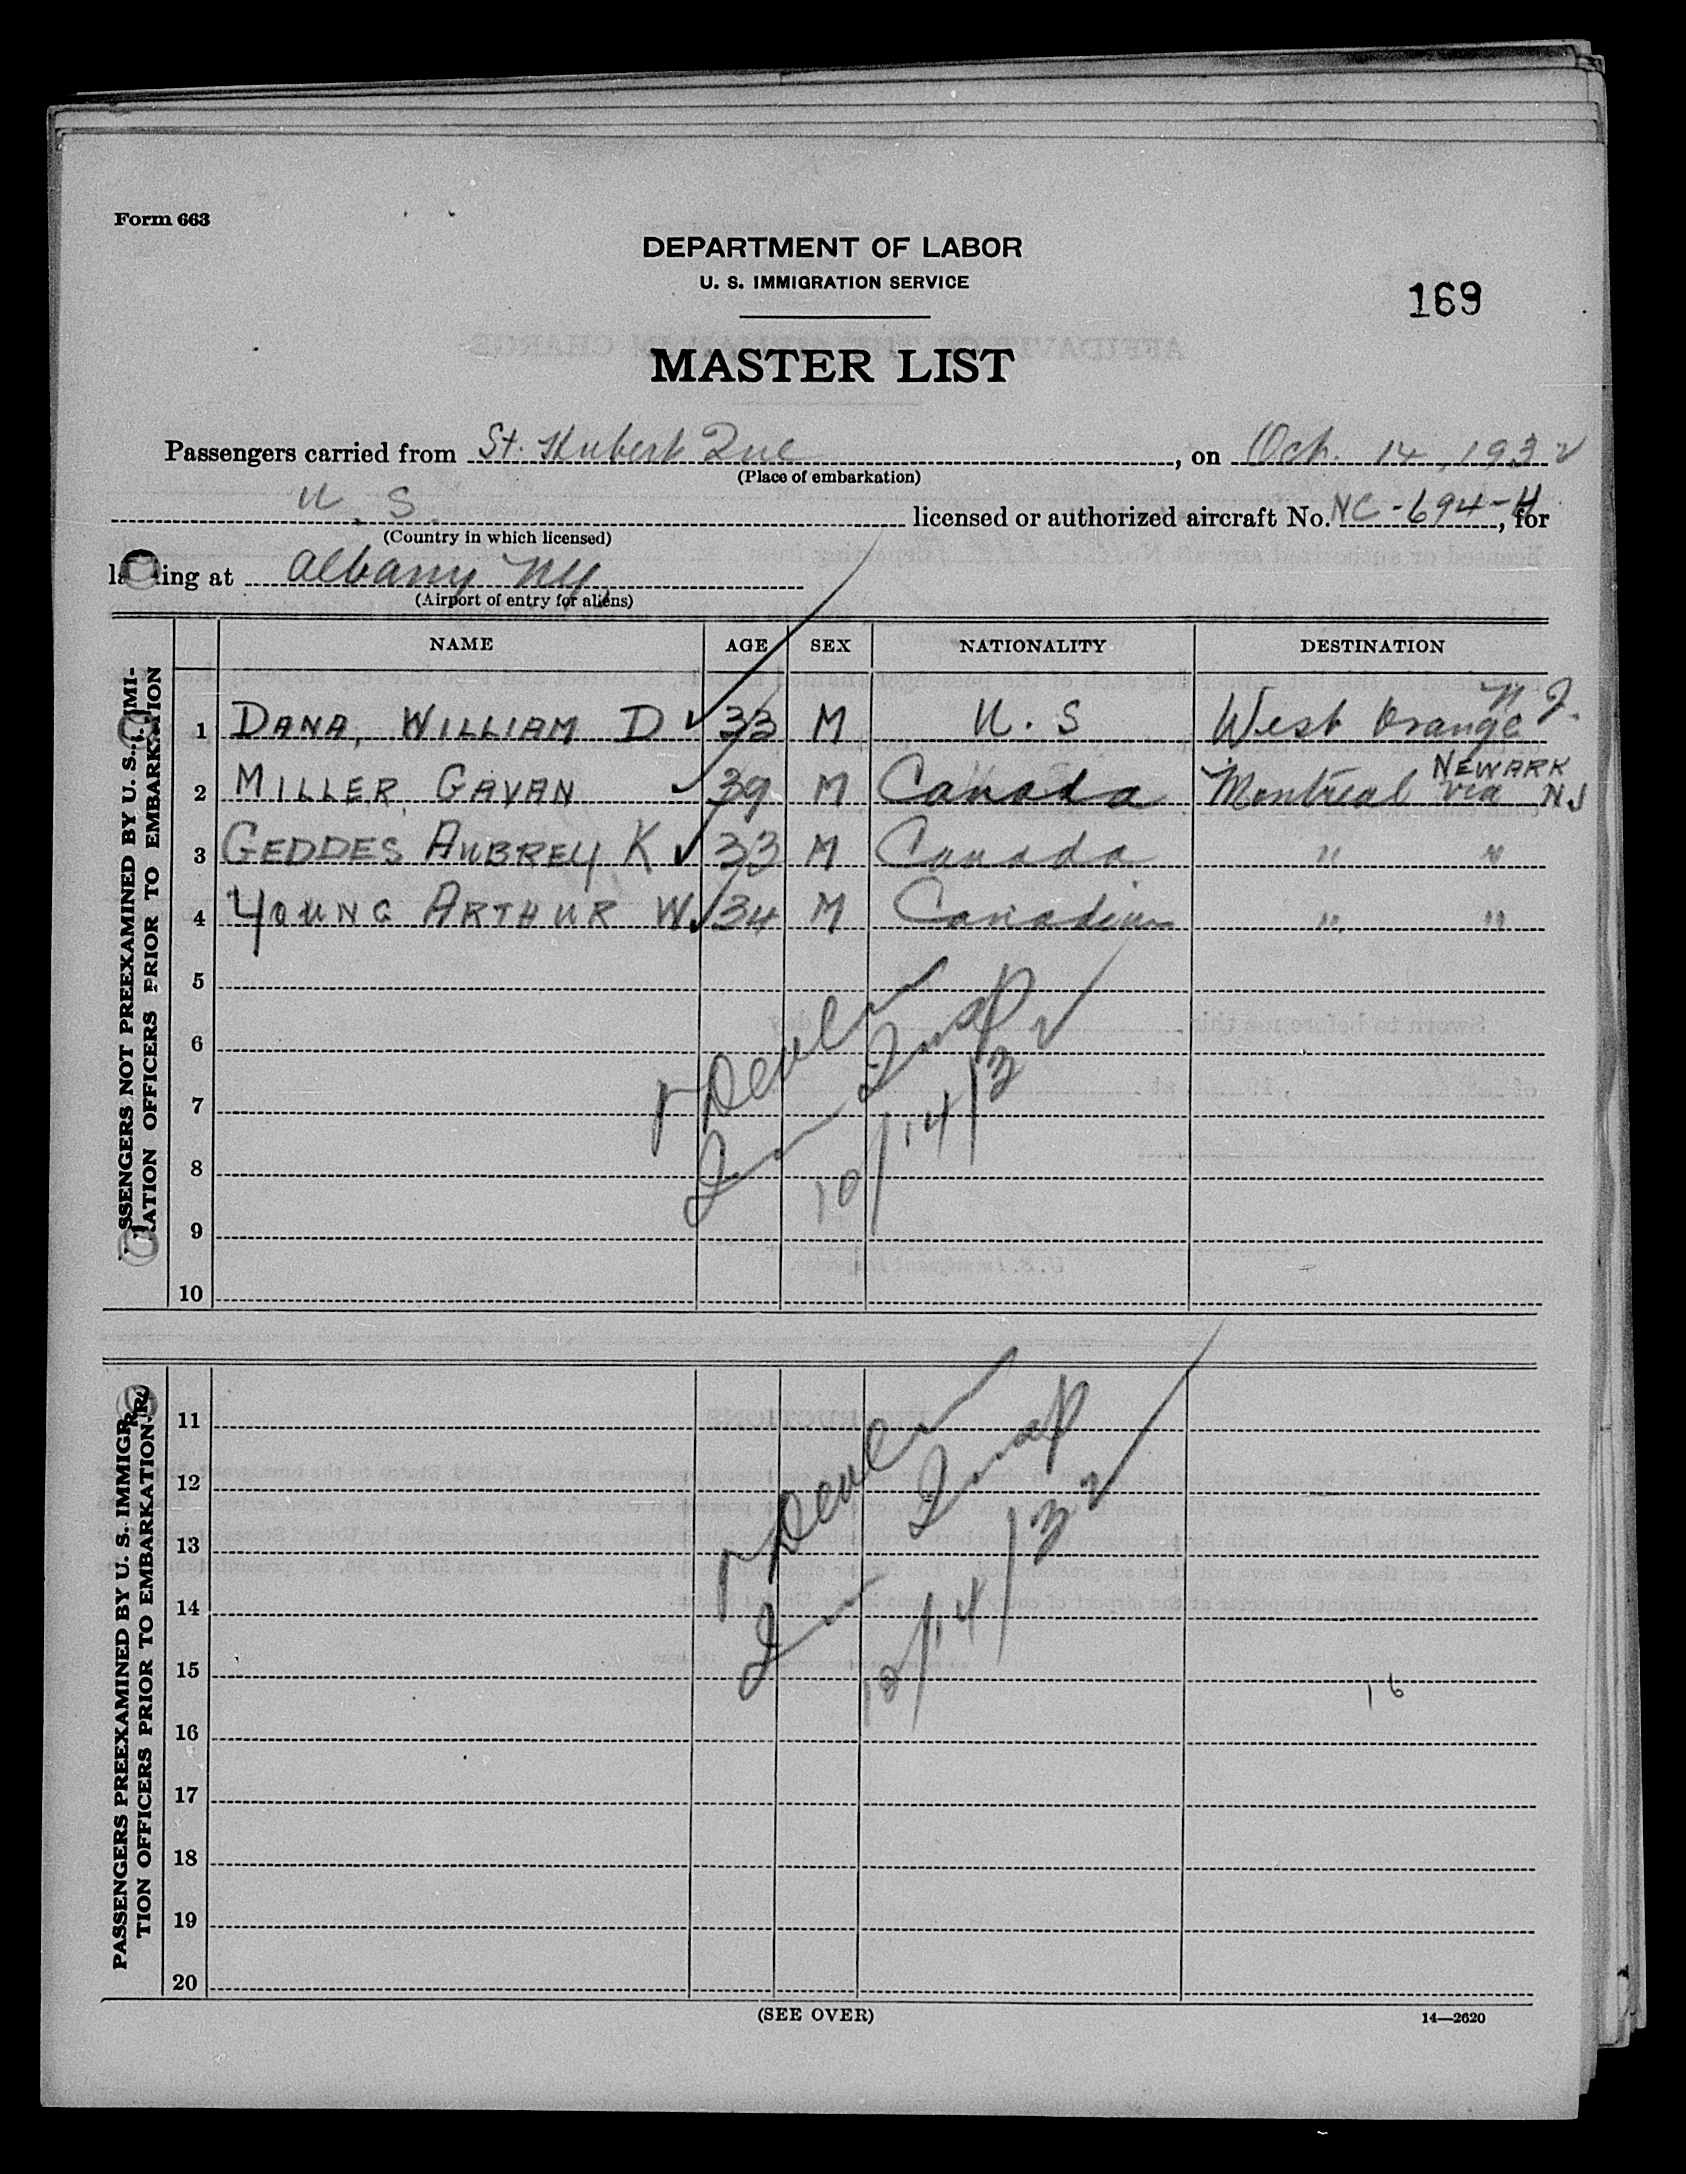 Form 663
DEPARTMENT OF LABOR
U. S. IMMIGRATION SERVICE
169
MASTER LIST
Passengers carried from St. Hubert Que, on Oct. 14, 1932
(Place of embarkation)
U. S. licensed or authorized aircraft No. NC-694-H, for
(Country in which licensed)
landing at Albany NY
(Airport of entry for aliens)
NAME AGE SEX NATIONALITY DESTINATION
PASSENGERS NOT PREEXAMINED BY U. S. IMMI-
GRATION OFFICERS PRIOR TO EMBARKATION
1 DANA, WILLIAM D ✓ 33 M U. S West Orange N J.
2 MILLER, GAVAN ✓ 39 M Canada Montreal via NEWARK NJ
3 GEDDES AUBREY, K ✓ 33 M Canada " "
4 YOUNG ARTHUR W. ✓ 34 M Canadian " "
5
6
7
8
9
10
10/14/32
PASSENGERS PREEXAMINED BY U. S. IMMIGRA-
TION OFFICERS PRIOR TO EMBARKATION
11
12
13
14
15
16
17
18
19
20
10/14/32
16
(SEE OVER)
14—2620